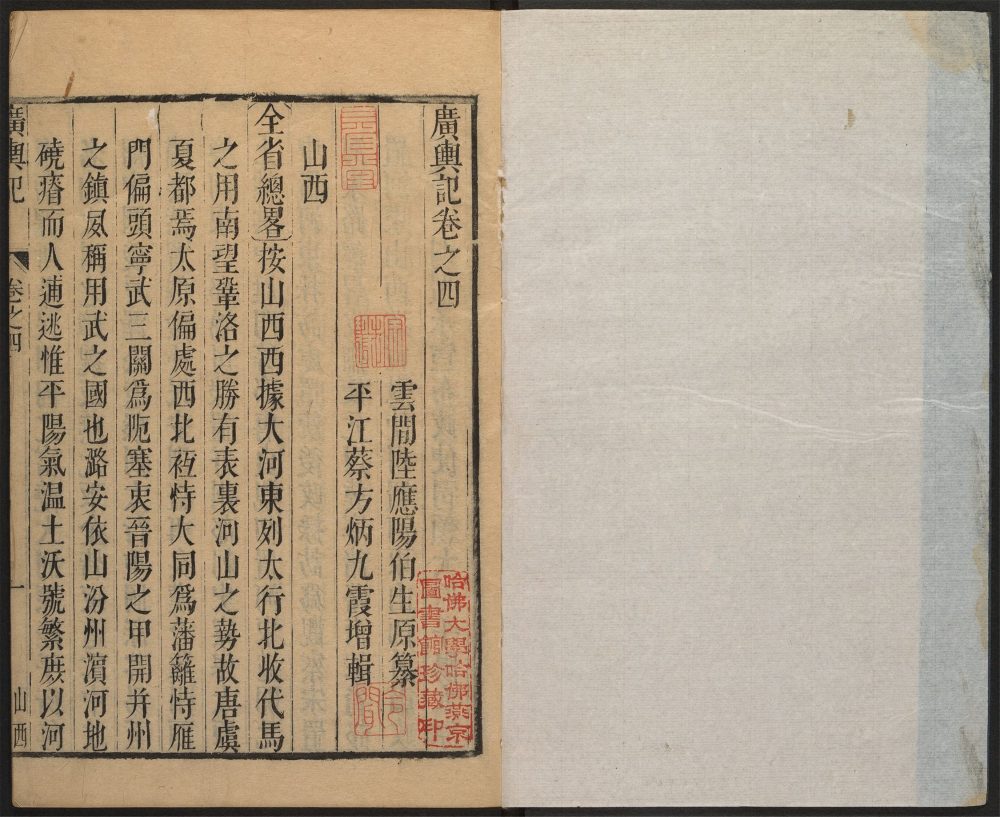 廣輿記卷之四
雲間陸應陽伯生原纂
平江蔡方炳九霞增輯
山西
全省總畧按山西西據大河東列太行北收代馬
之用南望鞏洛之勝有表裏河山之勢故唐虞
夏都焉太原偏處西北秪恃大同爲藩籬恃雁
門偏頭寧武三關爲阨塞衷晉陽之甲開并州
之鎮夙稱用武之國也潞安依山汾州濵河地
磽瘠而人逋逃惟平陽氣温土沃號繁庶以河
廣輿記
卷之四
一
山西
哈佛大學哈佛燕京
圖書館珍藏印